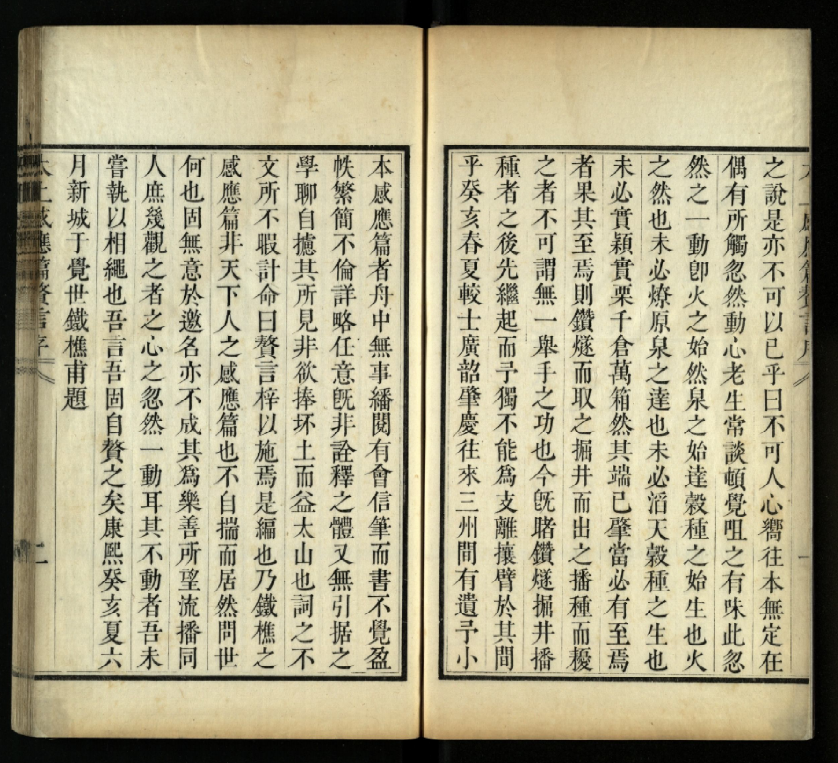 之說是亦不可以已乎曰不可人心嚮往本無定在
偶有所觸忽然動心老生常談頓覺咀之有味此忽
然之一動卽火之始然泉之始達穀種之始生也火
之然也未必燎原泉之達也未必滔天穀種之生也
未必實穎實栗千倉萬箱然其端已肇當必有至焉
者果其至焉則鑽燧而取之掘井而出之播種而耰
之者不可謂無一舉手之功也今旣賭鑽燧掘井播
種者之後先繼起而予獨不能爲支離攘臂於其間
乎癸亥春夏較士廣韶肇慶往來三州間有遺予小
本感應篇者舟中無事繙閱有會信筆而書不覺盈
帙繁簡不倫詳略任意旣非詮釋之體又無引据之
學聊自攄其所見非欲捧坏土而益太山也詞之不
文所不暇計命曰贅言梓以施焉是編也乃鐵樵之
感應篇非天下人之感應篇也不自揣而居然問世
何也固無意於邀名亦不成其爲樂善所望流播同
人庶幾觀之者之心之忽然一動耳其不動者吾未
嘗執以相繩也吾言吾固自贅之矣康熙癸亥夏六
月新城于覺世鐵樵甫題
太上感應篇贅言序
二